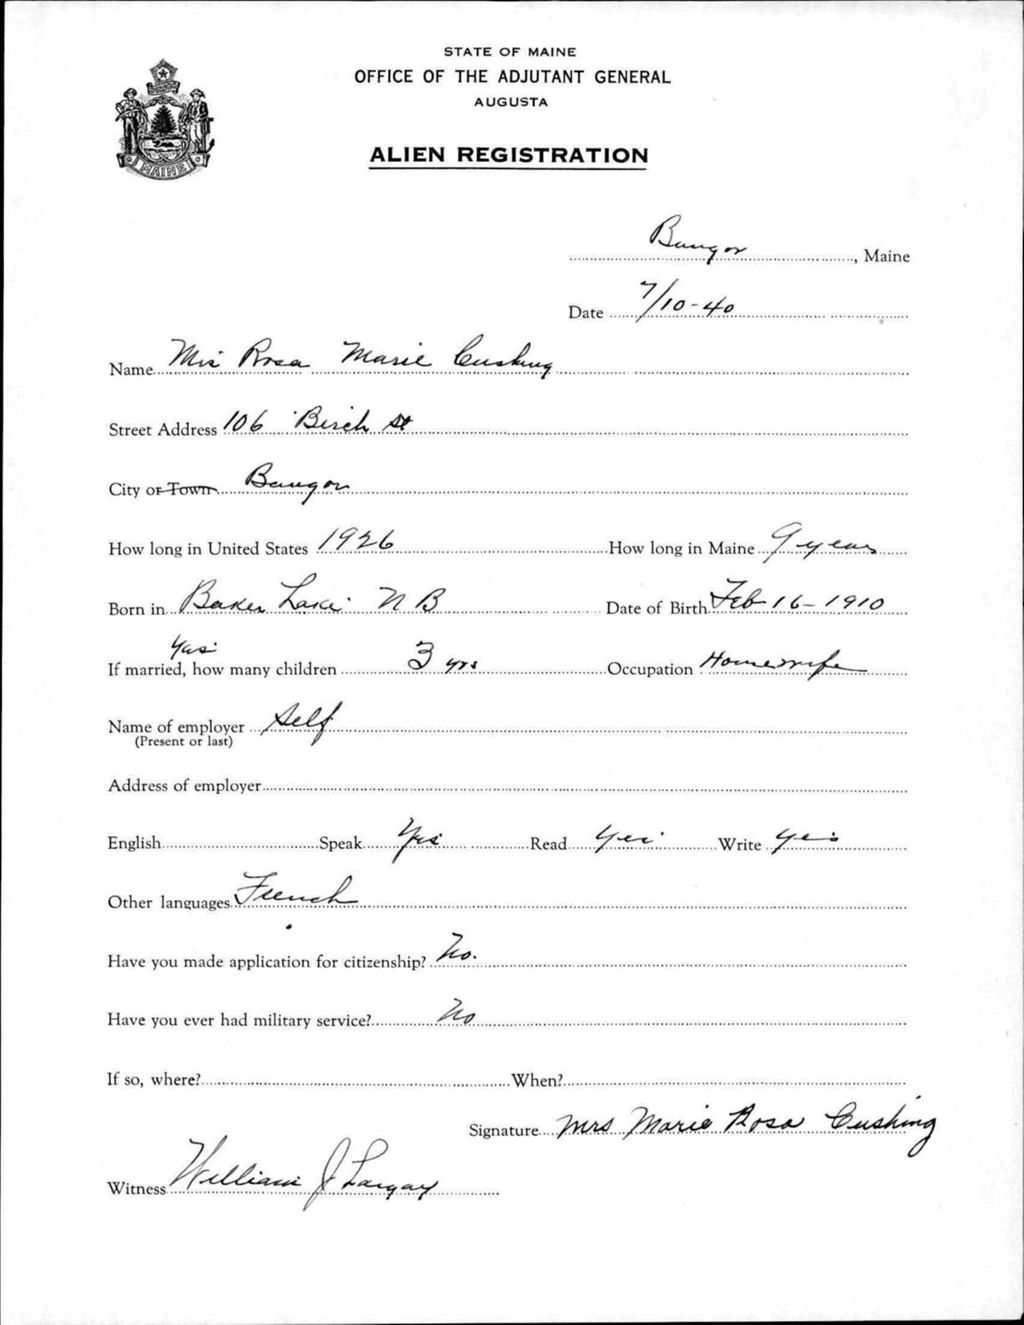 STATE OF MAINE
OFFICE OF THE ADJUTANT GENERAL
AUGUSTA
ALIEN REGISTRATION
MAINE
Bangor, Maine
Date 7/10-40
Name Mrs Rosa Marie Cushing
Street Address 106 Birch St
City or Town Bangor
How long in United States 1926 How long in Maine 9 years
Born in Baker Lake N B Date of Birth Feb 16-1910
Yes
If married, how many children 3 yrs Occupation Homewife
Name of employer Self
(Present or last)
Address of employer
English Speak Yes Read Yes Write Yes
Other languages French
Have you made application for citizenship? No.
Have you ever had military service? No
If so, where? When?
Signature Mrs Marie Rosa Cushing
Witness William J Largay